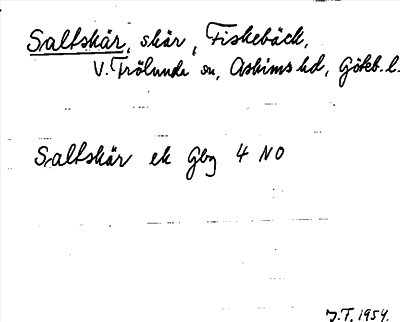 Saltskär, skär, Fiskebäck,
V. Frölunda sn, Askims hd, Göteb. l.
Saltskär ek Gbg 4 NO
J.T. 1954.